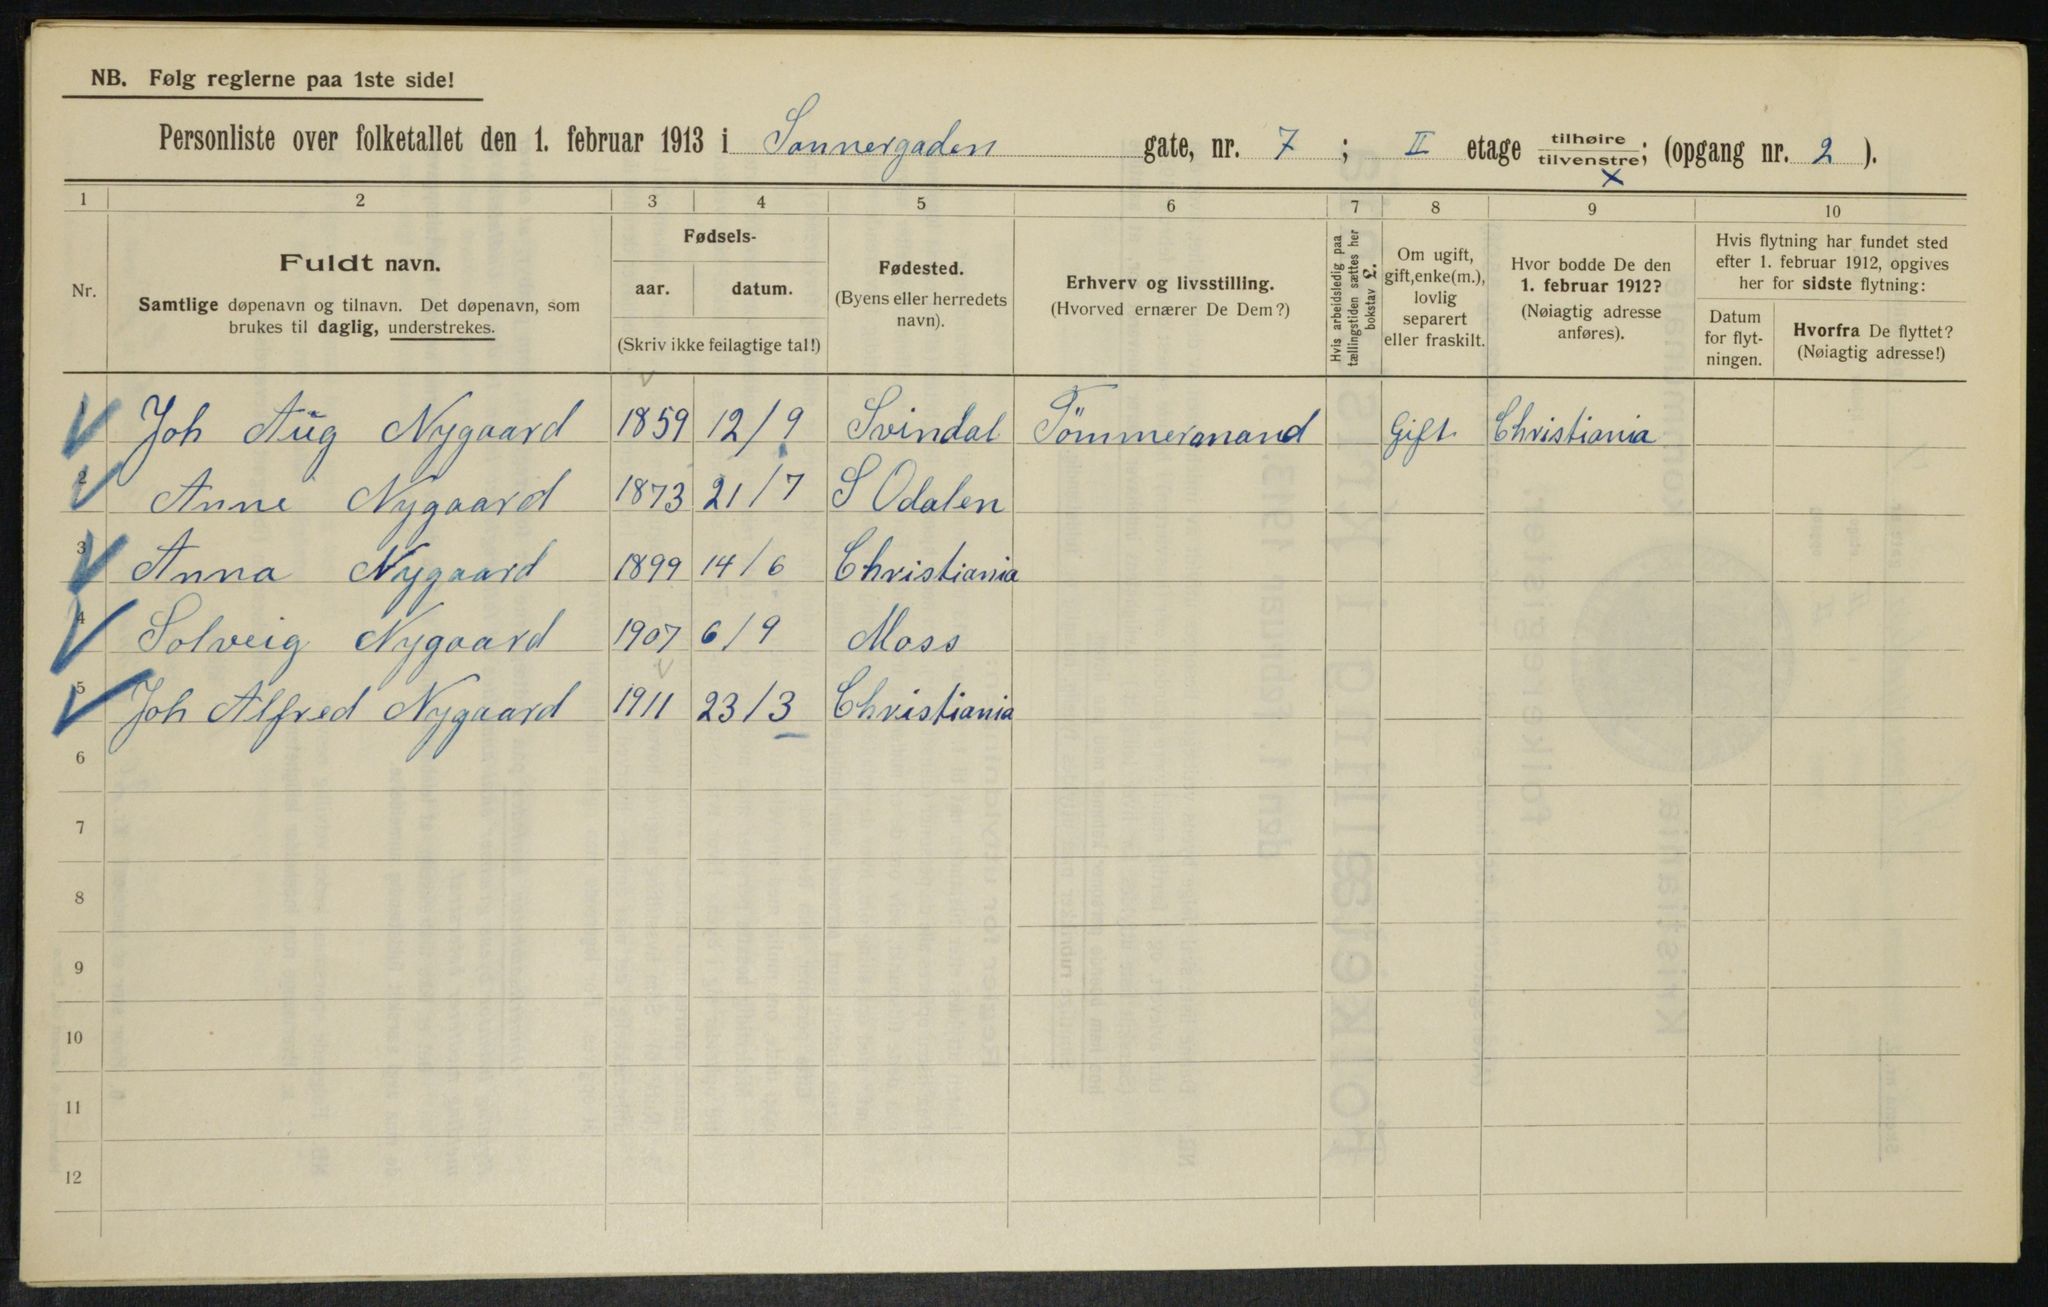 NB. Følg reglerne paa 1ste side!
Personliste over folketallet den 1. februar 1913 i Sannergaden gate, nr. 7 ; II etage tilhøire / tilvenstre; (opgang nr. 2 ).
x
1 2 3 4 5 6 7 8 9 10
Nr.
Fuldt navn.
Samtlige døpenavn og tilnavn. Det døpenavn, som
brukes til daglig, understrekes.
Fødsels-
aar. datum.
(Skriv ikke feilagtige tal!)
Fødested.
(Byens eller herredets
navn).
Erhverv og livsstilling.
(Hvorved ernærer De Dem?)
Hvis arbeidsledig paa
tællingstiden sættes her
bokstav L.
Om ugift,
gift, enke(m.),
lovlig
separert
eller fraskilt.
Hvor bodde De den
1. februar 1912?
(Nøiagtig adresse
anføres).
Hvis flytning har fundet sted
efter 1. februar 1912, opgives
her for sidste flytning:
Datum
for flyt-
ningen.
Hvorfra De flyttet?
(Nøiagtig adresse!)
1 Joh Aug Nygaard 1859 12/9 Svindal Tömmermand Gift Christiania
2 Anne Nygaard 1873 21/7 S Odalen
3 Anna Nygaard 1899 14/6 Christiania
4 Solveig Nygaard 1907 6/9 Moss
5 Joh Alfred Nygaard 1911 23/3 Christiania
6
7
8
9
10
11
12